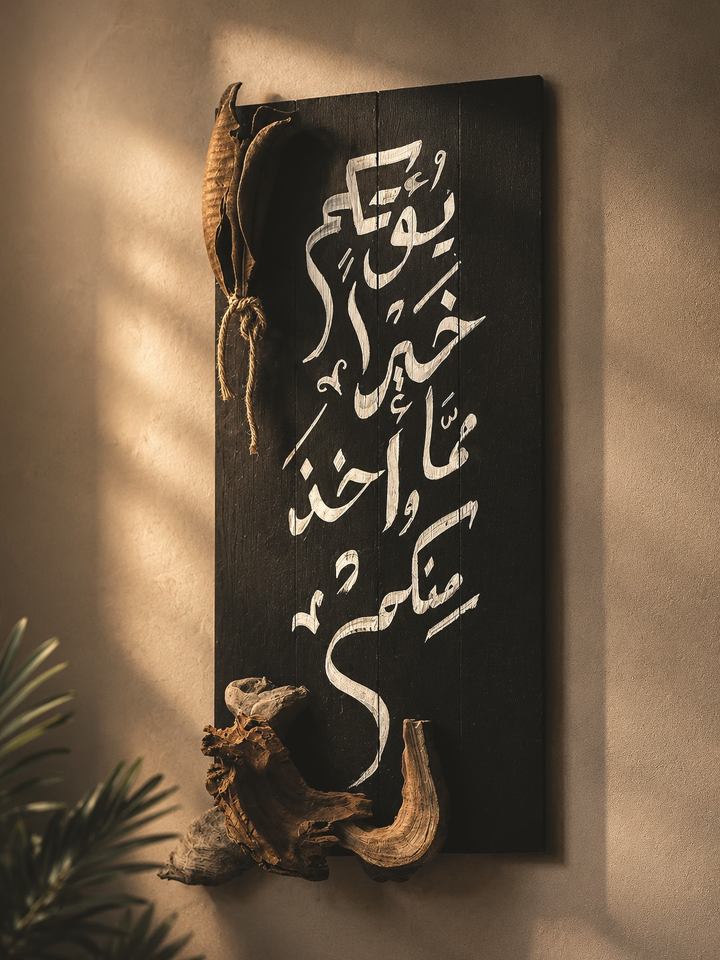 يُؤتكم
خَيْرًا
مّمَّا أُخذَ
مِنكمْ